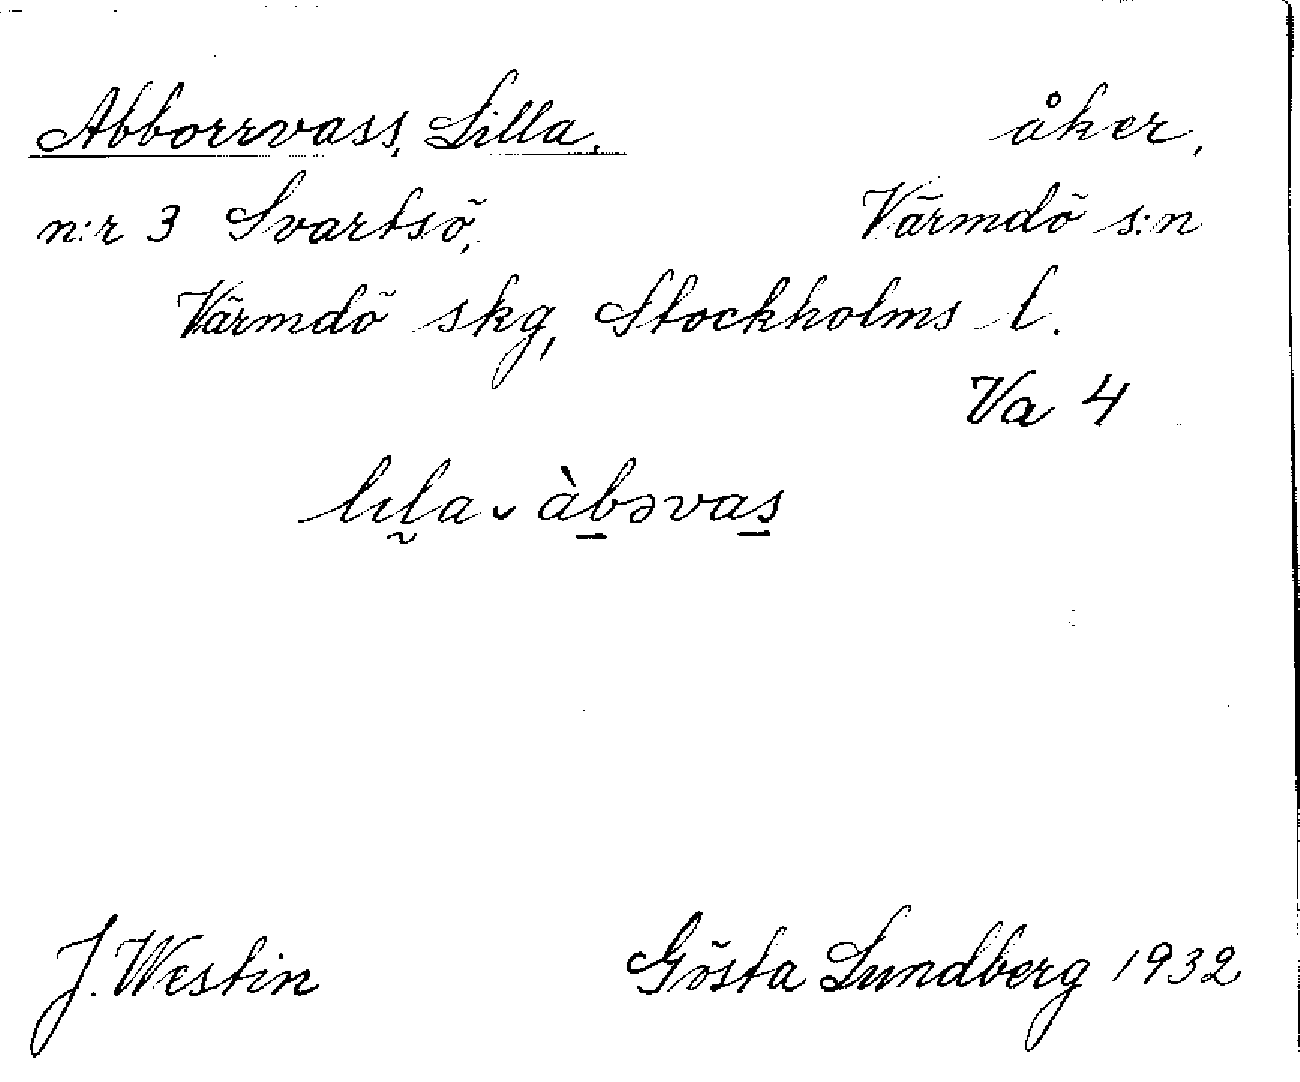 Abborrvass, Lilla. åker,
n:r 3 Svartsö, Värmdö s:n
Värmdö skg, Stockholms l.
Va 4
lıl̰a ˬ àb̲əvas̲
J. Westin Gösta Lundberg 1932